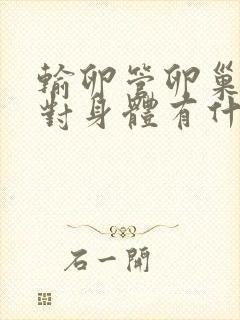 輸卵管卵巢
對身體有什
石一開